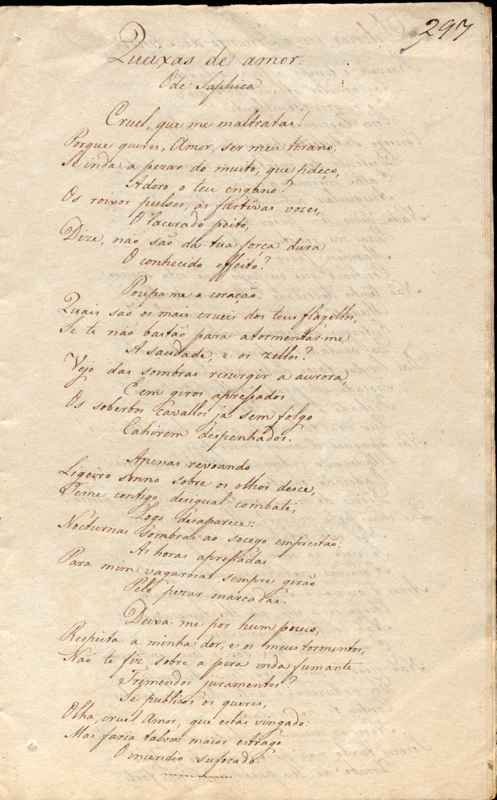 297
Queixas de amor.
Ode Saphica
Cruel, que me maltratas!
Porque queres, Amor, ser meu tirano,
Ainda a pezar do muito, que padeço,
Adoro o teu engano?
Os roixos pulsos, as furtivas vozes,
O lacerado peito,
Dize, não são da tua força dura
O conhecido effeito?
Poupa-me o coração.
Quais são os mais crueis dos teus flagellos,
Se te não bastão para atormentar-me
A saudade, e os zellos?
Vejo das sombras resurgir a aurora,
E em giros apressados
Os soberbos Cavallos já sem folgo
Cahirem despenhados.
Apenas revoando
Ligeiro sono sobre os olhos desce,
Teme contigo desigual combate,
Logo desaparece:
Nocturnas sombras ao socego
As horas apressadas
Para mim vagarosas sempre girão
Pelo pezar marcadas.
Deixa-me por hum pouco,
Respeita a minha dor, e os meus tormentos,
Não te fiz, sobre a pira inda fumante
Tremendos juramentos?
Se publicos os queres,
Olha, cruel Amor, que estás vingado
Mas faria talvez maior estrago
O incendio suforado.